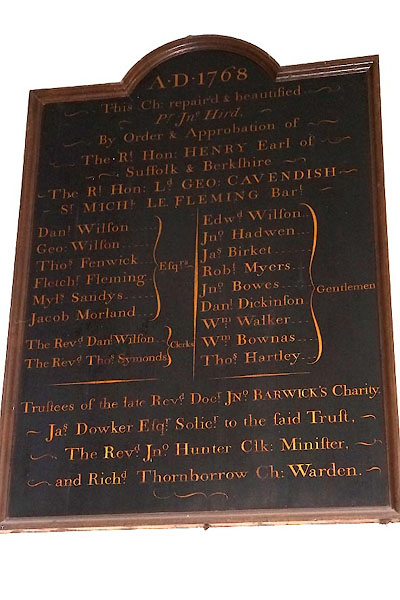 A·D·1768
This Ch: repair'd & beautified
Pr. Jno. Hird.
By Order & Approbation of
The Rt. Hon: HENRY Earl of
Suffolk & Berkſhire
The Rt. Hon: Ld. GEO: CAVENDISH
Sr. MICHl. LE FLEMING Bart.
Danl. Wilſon
Geo: Wilſon
Thos. Fenwick
Fletchr. Fleming
Myls. Sandys
Jacob Morland
Eſqrs.
The Revd. Danl. Wilſon
The Revd. Thos. Symonds
Clerks
Edwd. Wilſon
Jno. Hadwen
Jas. Birket
Robt. Myers
Jno. Bowes
Danl. Dickinſon
Wm. Walker
Wm. Bownas
Thos. Hartley
Gentlemen
Truſtees of the late Revd. Docr. Jno. BARWICK'S Charity.
Jas. Dowker Eſqr. Solicr. to the ſaid Truſt,
The Revd. Jno. Hunter Clk: Miniſter,
and Richd. Thornborrow Ch: Warden.